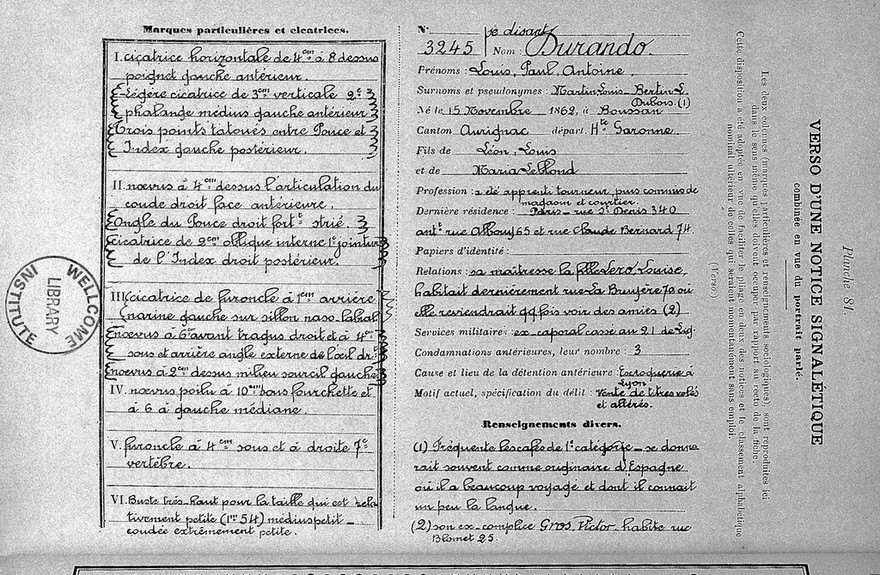 Marques particulières et cicatrices.
I. cicatrice horizontale de 4cm à 8 dessus
poignet gauche antérieur.
Légère cicatrice de 3cm verticale 2e
phalange médius gauche antérieur
Trois points tatoués entre Pouce et
Index gauche postérieur.
II. nœvus à 4cm dessus l'articulation du
coude droit face antérieure.
Ongle du Pouce droit fortt strié.
cicatrice de 2cm oblique interne 1e jointure
de l'Index droit postérieur.
III. cicatrice de furoncle à 1cm arrière
narine gauche sur sillon naso-labial
nœvus à 6cm avant tragus droit et à 4cm
sous et arrière angle externe de l'œil dt
nœvus à 2cm dessus milieu sourcil gauche
IV. nœvus poilu à 10cm sous fourchette et
à 6 à gauche médiane.
V. furoncle à 4cm sous et à droite 7e
vertèbre.
VI. Buste très haut pour la taille qui est rela
tivement petite (1m54) médius petit_
coudée extrêmement petite.
No
3245
se disant
Nom : Durando.
Prénoms : Louis, Paul, Antoine.
Surnoms et pseudonymes : Martin Louis_Bertin L.
Dubois. (1)
Né le 15 Novembre 1862, à Boussan
Canton Aurignac départ. Hte Garonne.
Fils de Léon, Louis
et de Maria Leblond
Profession : a été apprenti tourneur, puis commis de
magasin et courtier.
Dernière résidence : Paris_rue St Denis 340
antt rue Allouy 65 et rue Claude Bernard 74.
Papiers d'identité :
Relations : sa maîtresse la fille Lero, Louise,
habitait dernièrement rue La Bruyère 70 où
elle reviendrait qq fois voir des amies (2)
Services militaires : ex-caporal cassé au 21 de Lig.
Condamnations antérieures, leur nombre : 3
Cause et lieu de la détention antérieure : Escroquerie à
Lyon.
Motif actuel, spécification du délit : Vente de titres volés
et altérés.
Renseignements divers.
(1) Fréquente les cafés de 1e catégorie_se donne
rait souvent comme originaire d'Espagne
où il a beaucoup voyagé et dont il connait
un peu la langue.
(2) son ex-complice Gros, Victor habite rue
Blomet 25.
Planche 81.
VERSO D'UNE NOTICE SIGNALÉTIQUE
combinée en vue du portrait parlé.
Les deux colonnes (marques particulières et renseignements sociologiques) sont reproduites ici
dans le sens même qu'elles doivent occuper par rapport au recto de la fiche.
Cette disposition a été adoptée en vue de faciliter le pliage en deux des notices et le classement alphabétique
nominal ultérieur de celles qui seraient momentanément sans emploi.
(Verso)
WELLCOME
INSTITUTE
LIBRARY